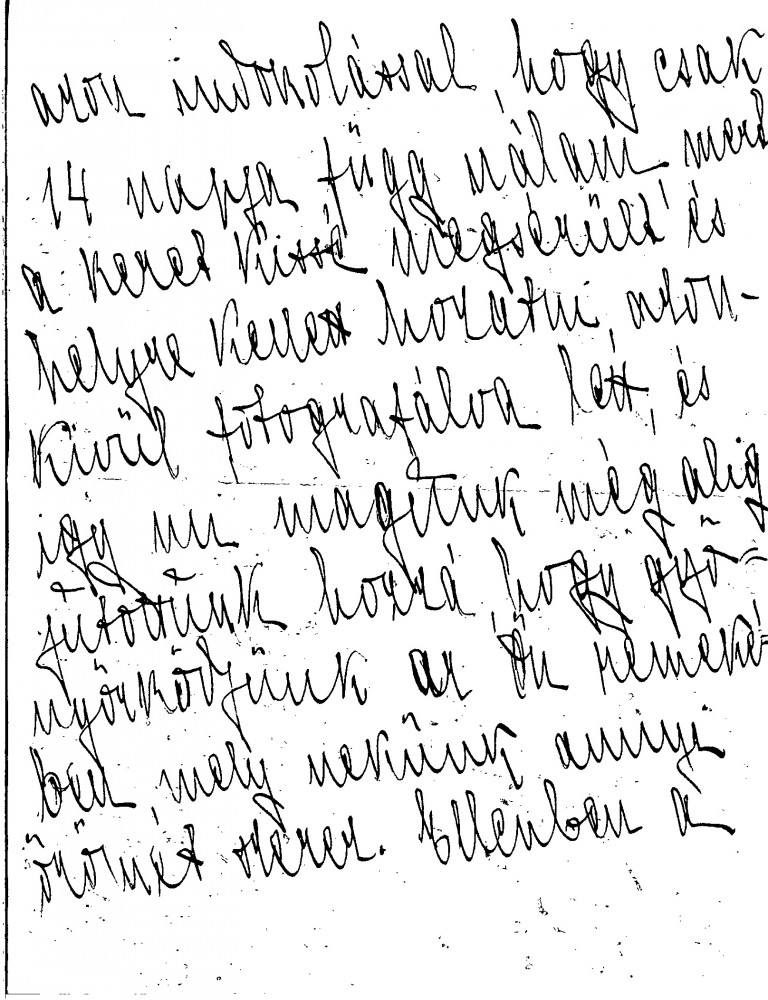 azon indokolással, hogy csak
14 napja függ nálam, mert
a keret kissé megsérült és
helyre kellett hozatni, azon-
kívül fotografálva lett, és
így mi magunk még alig
jutottunk hozzá, hogy gyö-
nyörködjünk az Ön remeké-
ben, mely nekünk annyi
örömet szerez. Ellenben a